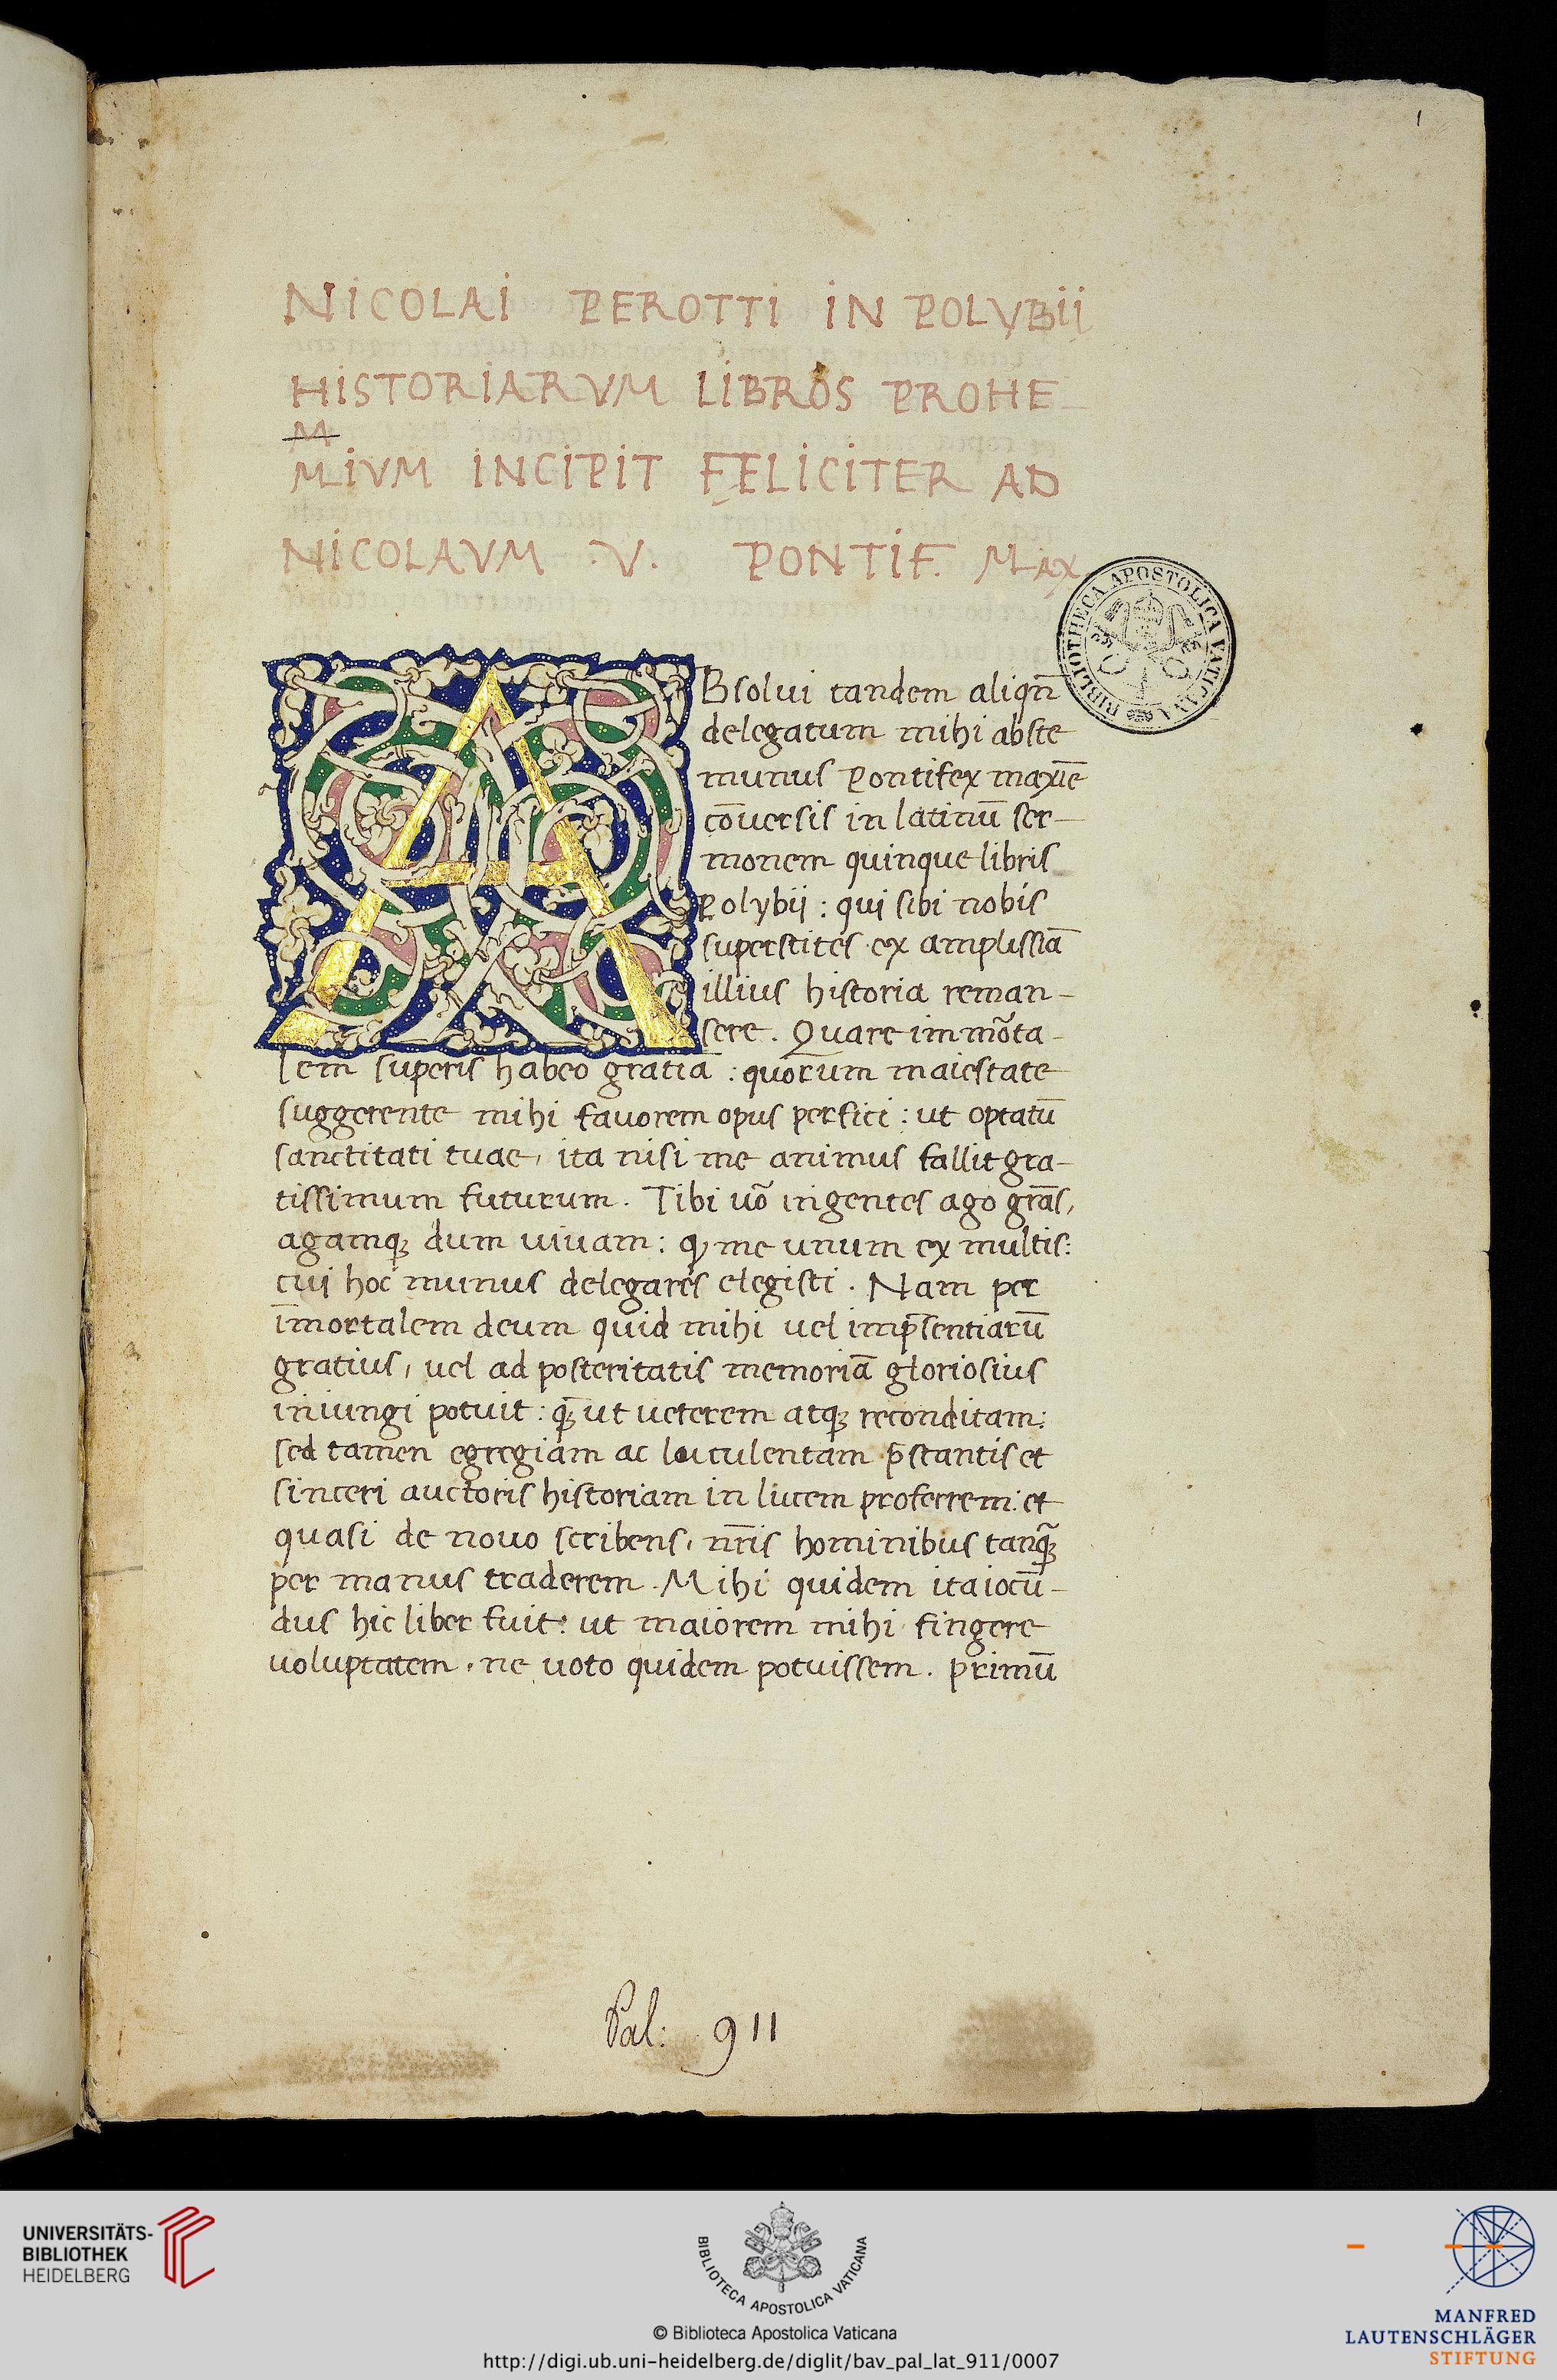 1
NICOLAI PEROTTI IN POLYBII
HISTORIARVM LIBROS PROHE
M
MIVM INCIPIT FELICITER AD
NICOLAVM .V. PONTIF. MAX
BIBLIOTHECA APOSTOLICA VATICANA
ABsolui tandem aliqñ
delegatum mihi abste
munus Pontifex maxīe
cōuersis in latinū ser-
monem quinque libris
Polybii : qui sibi nobis
superstites ex amplissiā
illius historia reman-
sere. Quare immõta-
lem superis habeo gratiā : quorum maiestate
suggerente mihi fauorem opus perfici : ut optatū
sanctitati tuae, ita nisi me animus fallit gra-
tissimum futurum. Tibi uõ ingentes ago grãs,
agamqꝫ dum uiuam : ꝙ me unum ex multis:
cui hoc munus delegares elegisti. Nam per
īmortalem deum quid mihi uel imp̄sentiarū
gratius, uel ad posteritatis memoriā gloriosius
iniungi potuit : qꝫ̃ ut ueterem atqꝫ reconditam:
sed tamen egregiam ac luculentam p̄stantis et
sinceri auctoris historiam in lucem proferrem: et
quasi de nouo scribens, nr̄is hominibus tanqꝫ̃
per manus traderem. Mihi quidem ita iocū-
dus hic liber fuit: ut maiorem mihi fingere
uoluptatem, ne uoto quidem potuissem. primū
Pal: 911
UNIVERSITÄTS-
BIBLIOTHEK
HEIDELBERG
BIBLIOTECA APOSTOLICA VATICANA
© Biblioteca Apostolica Vaticana
http://digi.ub.uni-heidelberg.de/diglit/bav_pal_lat_911/0007
MANFRED
LAUTENSCHLÄGER
STIFTUNG